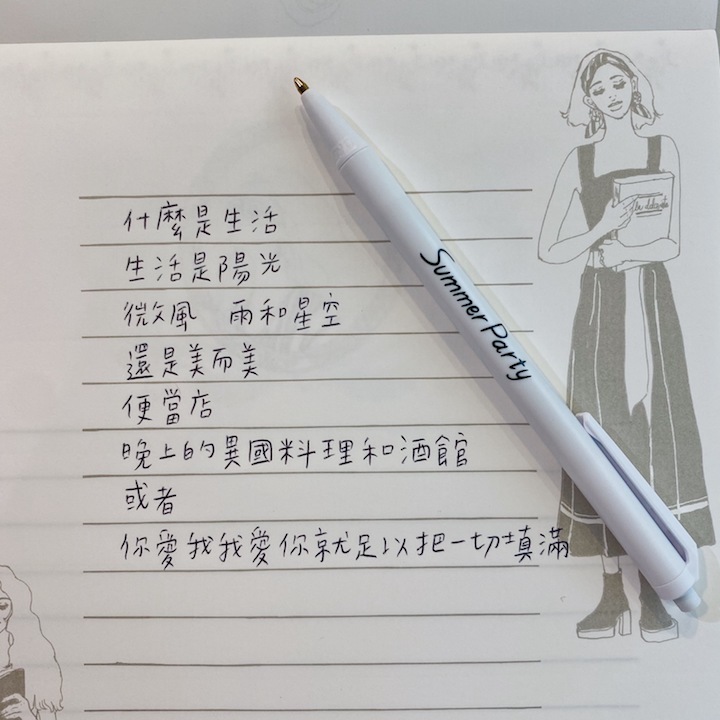 什麼是生活
生活是陽光
微風 雨和星空
還是美而美
便當店
晚上的異國料理和酒館
或者
你愛我我愛你就足以把一切填滿
Summer Party